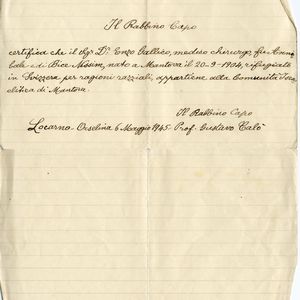 Il Rabbino Capo
certifica che il sigr Dr. Enzo Gallico, medico chirurgo, fu Anni
bale e di Bice Massim, nato a Mantova il 20-9-1904, rifugiato
in Svizzera per ragioni razziali, appartiene alla Comunità Isra
elitica di Mantova.
Il Rabbino Capo
Locarno-Orselina 6 Maggio 1945 - Prof. Gustavo Calò